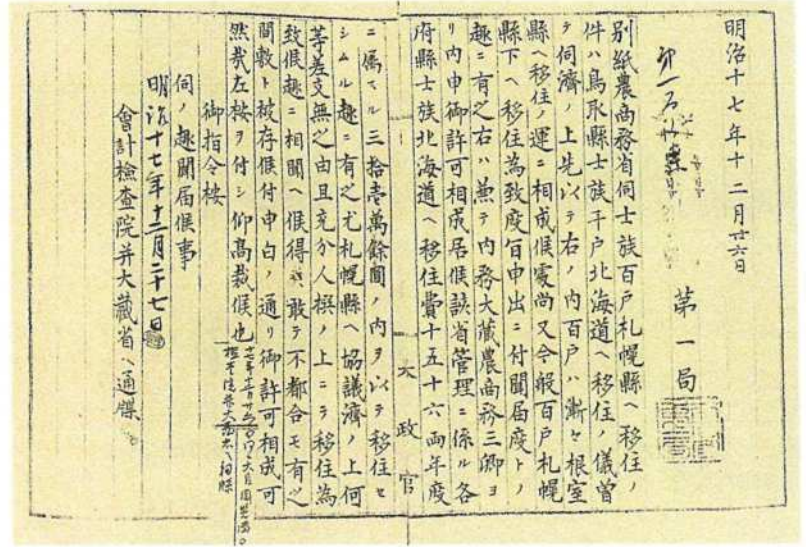 明治十七年十二月廿六日
第一局
別紙農商務省伺士族百戸札幌縣ヘ移住ノ
件ハ鳥取縣士族千戸北海道ヘ移住ノ儀曽
テ伺濟ノ上先以テ右ノ内百戸ハ漸ク根室
縣ヘ移住ノ運ニ相成候處尚又今般百戸札幌
縣下ヘ移住為致度旨申出ニ付聞届度トノ
趣ニ有之右ハ兼テ内務大藏農商務三卿ヨ
リ内申御許可相成居候該省管理ニ係ル各
府縣士族北海道ヘ移住費十五十六両年度
ニ属スル三拾壱萬餘圓ノ内ヲ以テ移住セ
シムル趣ニ有之尤札幌縣ヘ協議濟ノ上何
等差支無之由且充分人撰ノ上ニテ移住為
致候趣ニ相聞ヘ候得ハ敢テ不都合モ有之
間敷ト被存候付申白ノ通リ御許可相成可
然哉左按ヲ付シ仰高裁候也
御指令按
伺ノ趣聞届候事
明治十七年十二月二十七日
會計檢査院并大藏省ヘ通牒
太政官